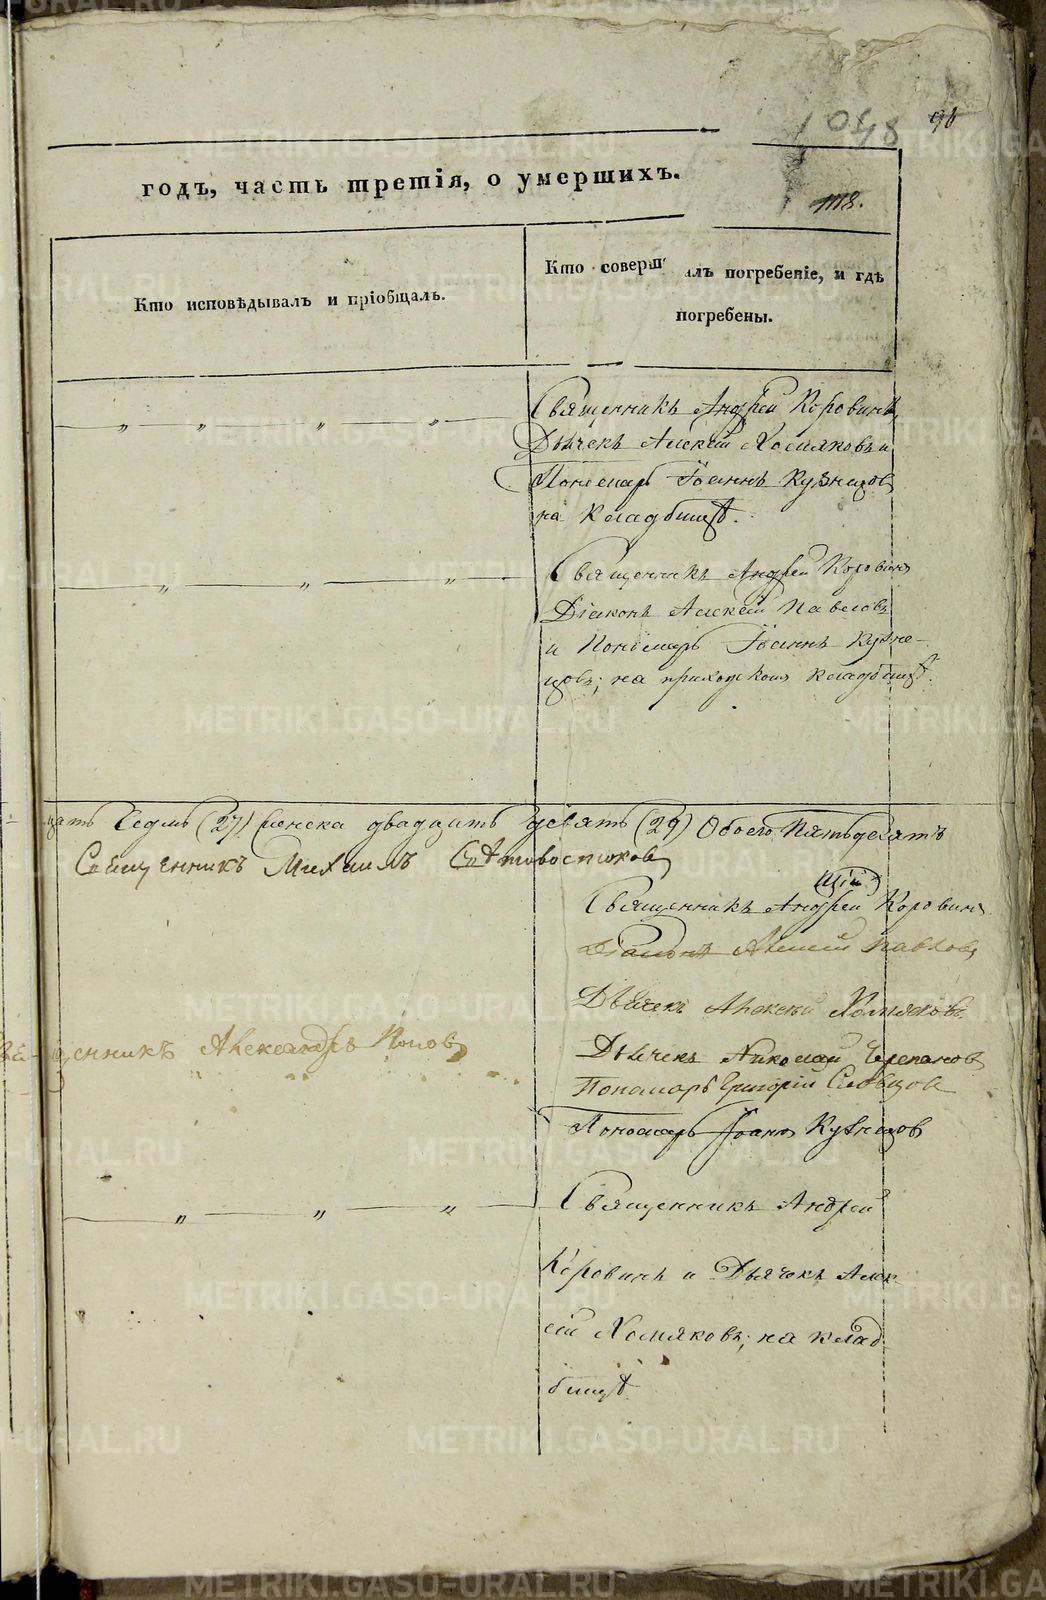 1048
96
годъ, часть третія, о умершихъ.
1118.
Кто исповѣдывалъ и пріобщалъ.
Кто соверш алъ погребеніе, и гдѣ
погребены.
Священникъ Андрей Коровинъ
Дьячекъ Алексѣй Хомяковъ и
Пономарь Іоаннъ Кузнецов
на Кладбищѣ.
Священникъ Андрей Коровинъ
Діаконъ Алексѣй Павловъ
и Пономарь Іоаннъ Кузне-
цовъ; на приходском кладбищѣ.
цать Седмь (27) Женска двадцать девять (29) Обоего Пятьдесятъ
Священникъ Михаилъ
Священникъ Андрей Коровинъ
Діаконъ Алексѣй Павловъ
Дьячекъ Алексѣй Хомяковъ.
щенникъ Александръ Попов
Дьячекъ Николай Черепанов
Пономарь Григорій Словцов
Пономарь Іоаннъ Кузнецов
Священникъ Андрей
Коровинъ и Дьячекъ Алек-
сѣй Хомяковъ; на клад-
бищѣ
METRIKI.GASO-URAL.RU